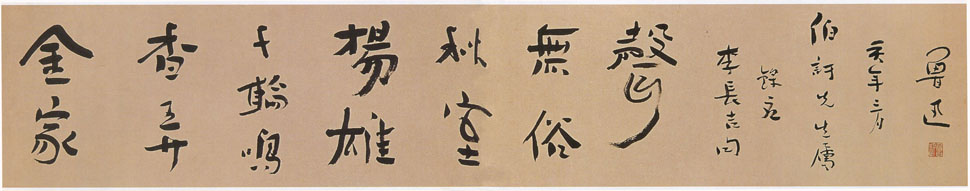 金家
香弄
千輪鳴
楊雄
秋室
無俗
聲
李長吉句
錄應
伯訏先生屬
亥年三月
魯迅